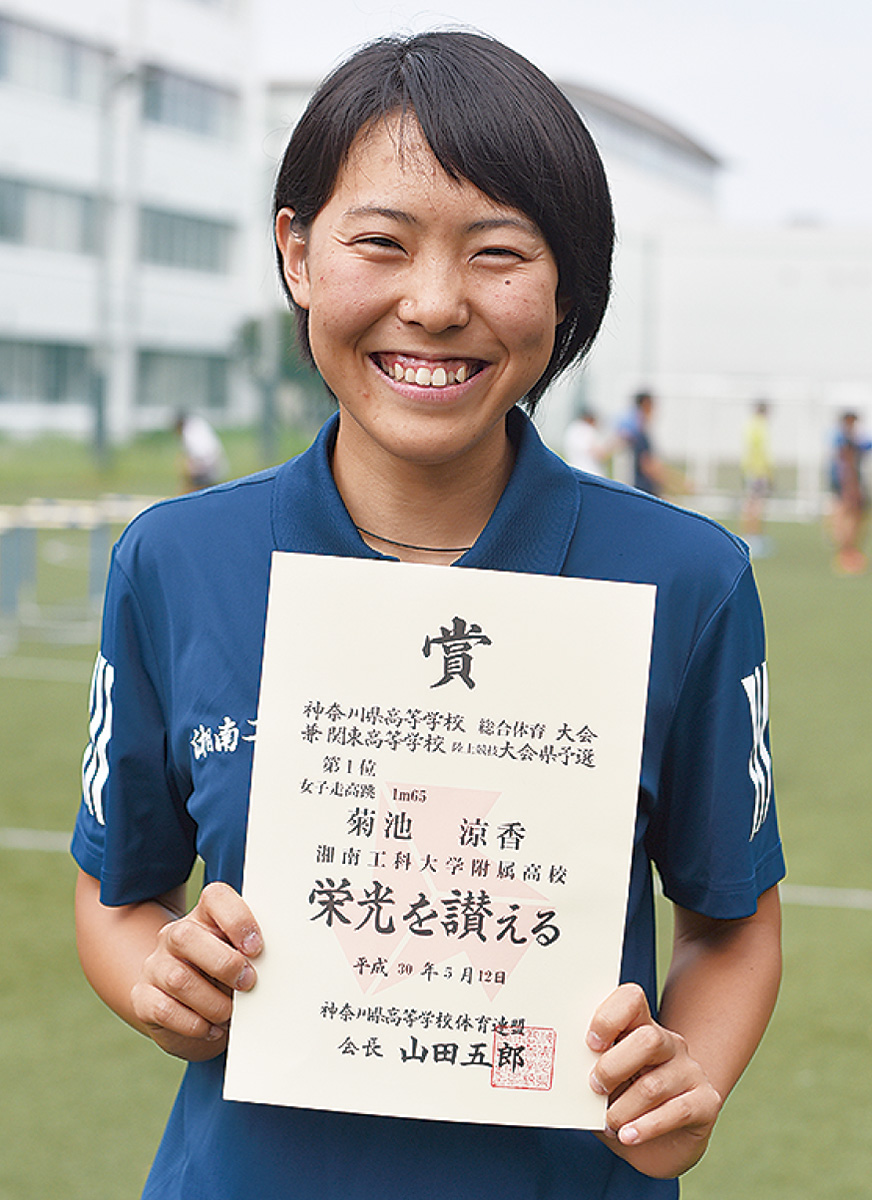 賞
神奈川県高等学校 総合体育 大会
兼 関東高等学校 陸上競技 大会県予選
第1位
女子走高跳 1m65
菊池 涼香
湘南工科大学附属高校
栄光を讃える
平成 30 年 5 月 12日
神奈川県高等学校体育連盟
会長 山田五郎
湘南工